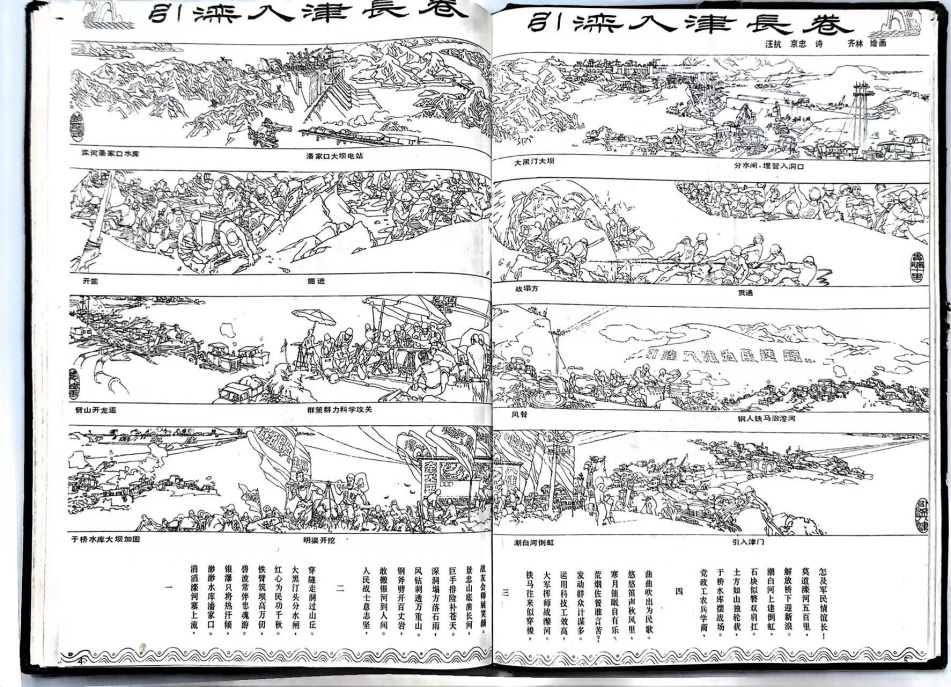 引滦入津長卷
滦河潘家口水库
潘家口大坝电站
开凿
掘进
劈山开龙道
群策群力科学攻关
于桥水库大坝加固
明渠开挖
一
滔滔滦河塞上流，
渺渺水库潘家口。
银瀑只将热汗倾，
碧波常伴忠魂游。
铁臂筑坝高万仞，
红心为民功千秋。
大黑汀头分水闸，
穿隧走洞过山丘。
二
人民战士意志坚，
敢搬银河到人间。
钢斧劈开百丈岩，
风钻刺透万重山。
深洞塌方落石雨，
巨手排险补苍天。
景忠山底凿长河，
战友会师展笑颜
4
引滦入津長卷
汪抗 京忠 诗 齐林 绘画
大黑汀大坝
分水闸、埋管入洞口
战塌方
贯通
风餐
钢人铁马治黎河
潮白河倒虹
引入津门
三
铁马往来似穿梭，
大军挥师战黎河。
运用科技工效高，
发动群众计谋多。
荒烟佐餐谁言苦？
寒月催眠自有乐。
悠悠笛声秋风里，
曲曲吹出为民歌。
四
党政工农兵学商，
于桥水库摆战场。
土方如山独轮载，
石块似磐双肩扛。
潮白河上建倒虹，
解放桥下迎新浪。
莫道滦河五百里，
怎及军民情谊长！
5